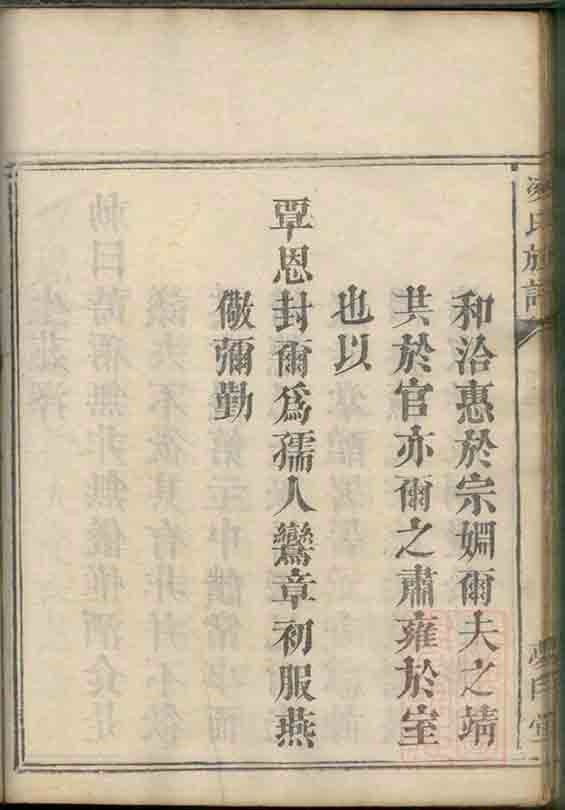 和洽惠於宗婣爾夫之靖
共於官亦爾之肅雍於室
也以
覃恩封爾爲孺人鸞章初服燕
儆彌勤
氏族譜